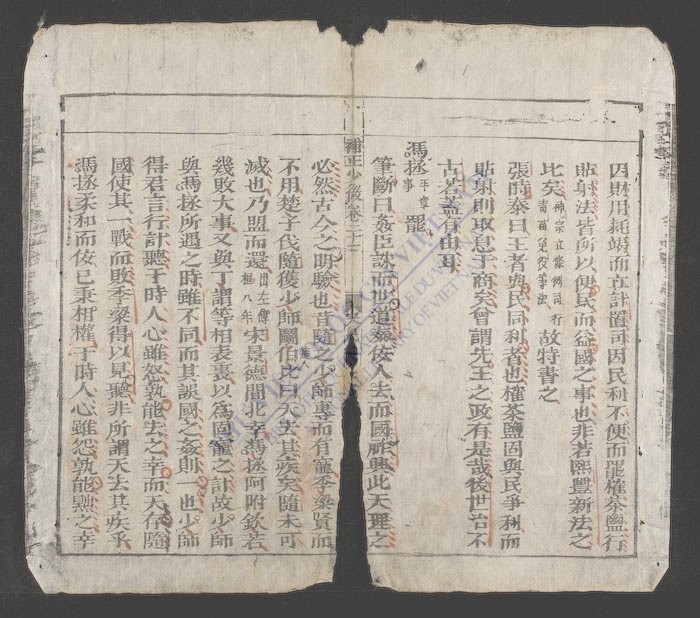 因財用耗竭而立計置司因民利不便而罷榷茶鹽行
貼射法皆所以便民而益國之事也非若熙豐新法之
比矣神宗立條例司行青苗免役等法故特書之
張時泰曰王者與民同利者也榷茶鹽固與民爭利而
貼射則取息于商矣曾謂先王之政有是哉後世治不
古若蓋有由耳
馮拯平章事罷
筆斷曰姦臣誅而世道泰佞人去而國祚興此天理之
必然古今之明驗也昔隨之少師專而有寵季梁賢而
不用楚子伐隨獲少師鬭伯比曰天去其疾矣隨未可
滅也乃盟而還出左傳桓八年宋景德間北幸馮拯阿附欽若
幾敗大事又與丁謂等相表裏以為固寵之計故少師
與馮拯所遇之時雖不同而其誤國之姦則一也少師
得君言行計聽于時人心雖怒孰能去之幸而天佑隨
國使其一戰而敗季梁得以見聽非所謂天去其疾乎
馮拯柔和而佞已秉相權于時人心雖怨孰能黜之幸
補正少微卷二十二